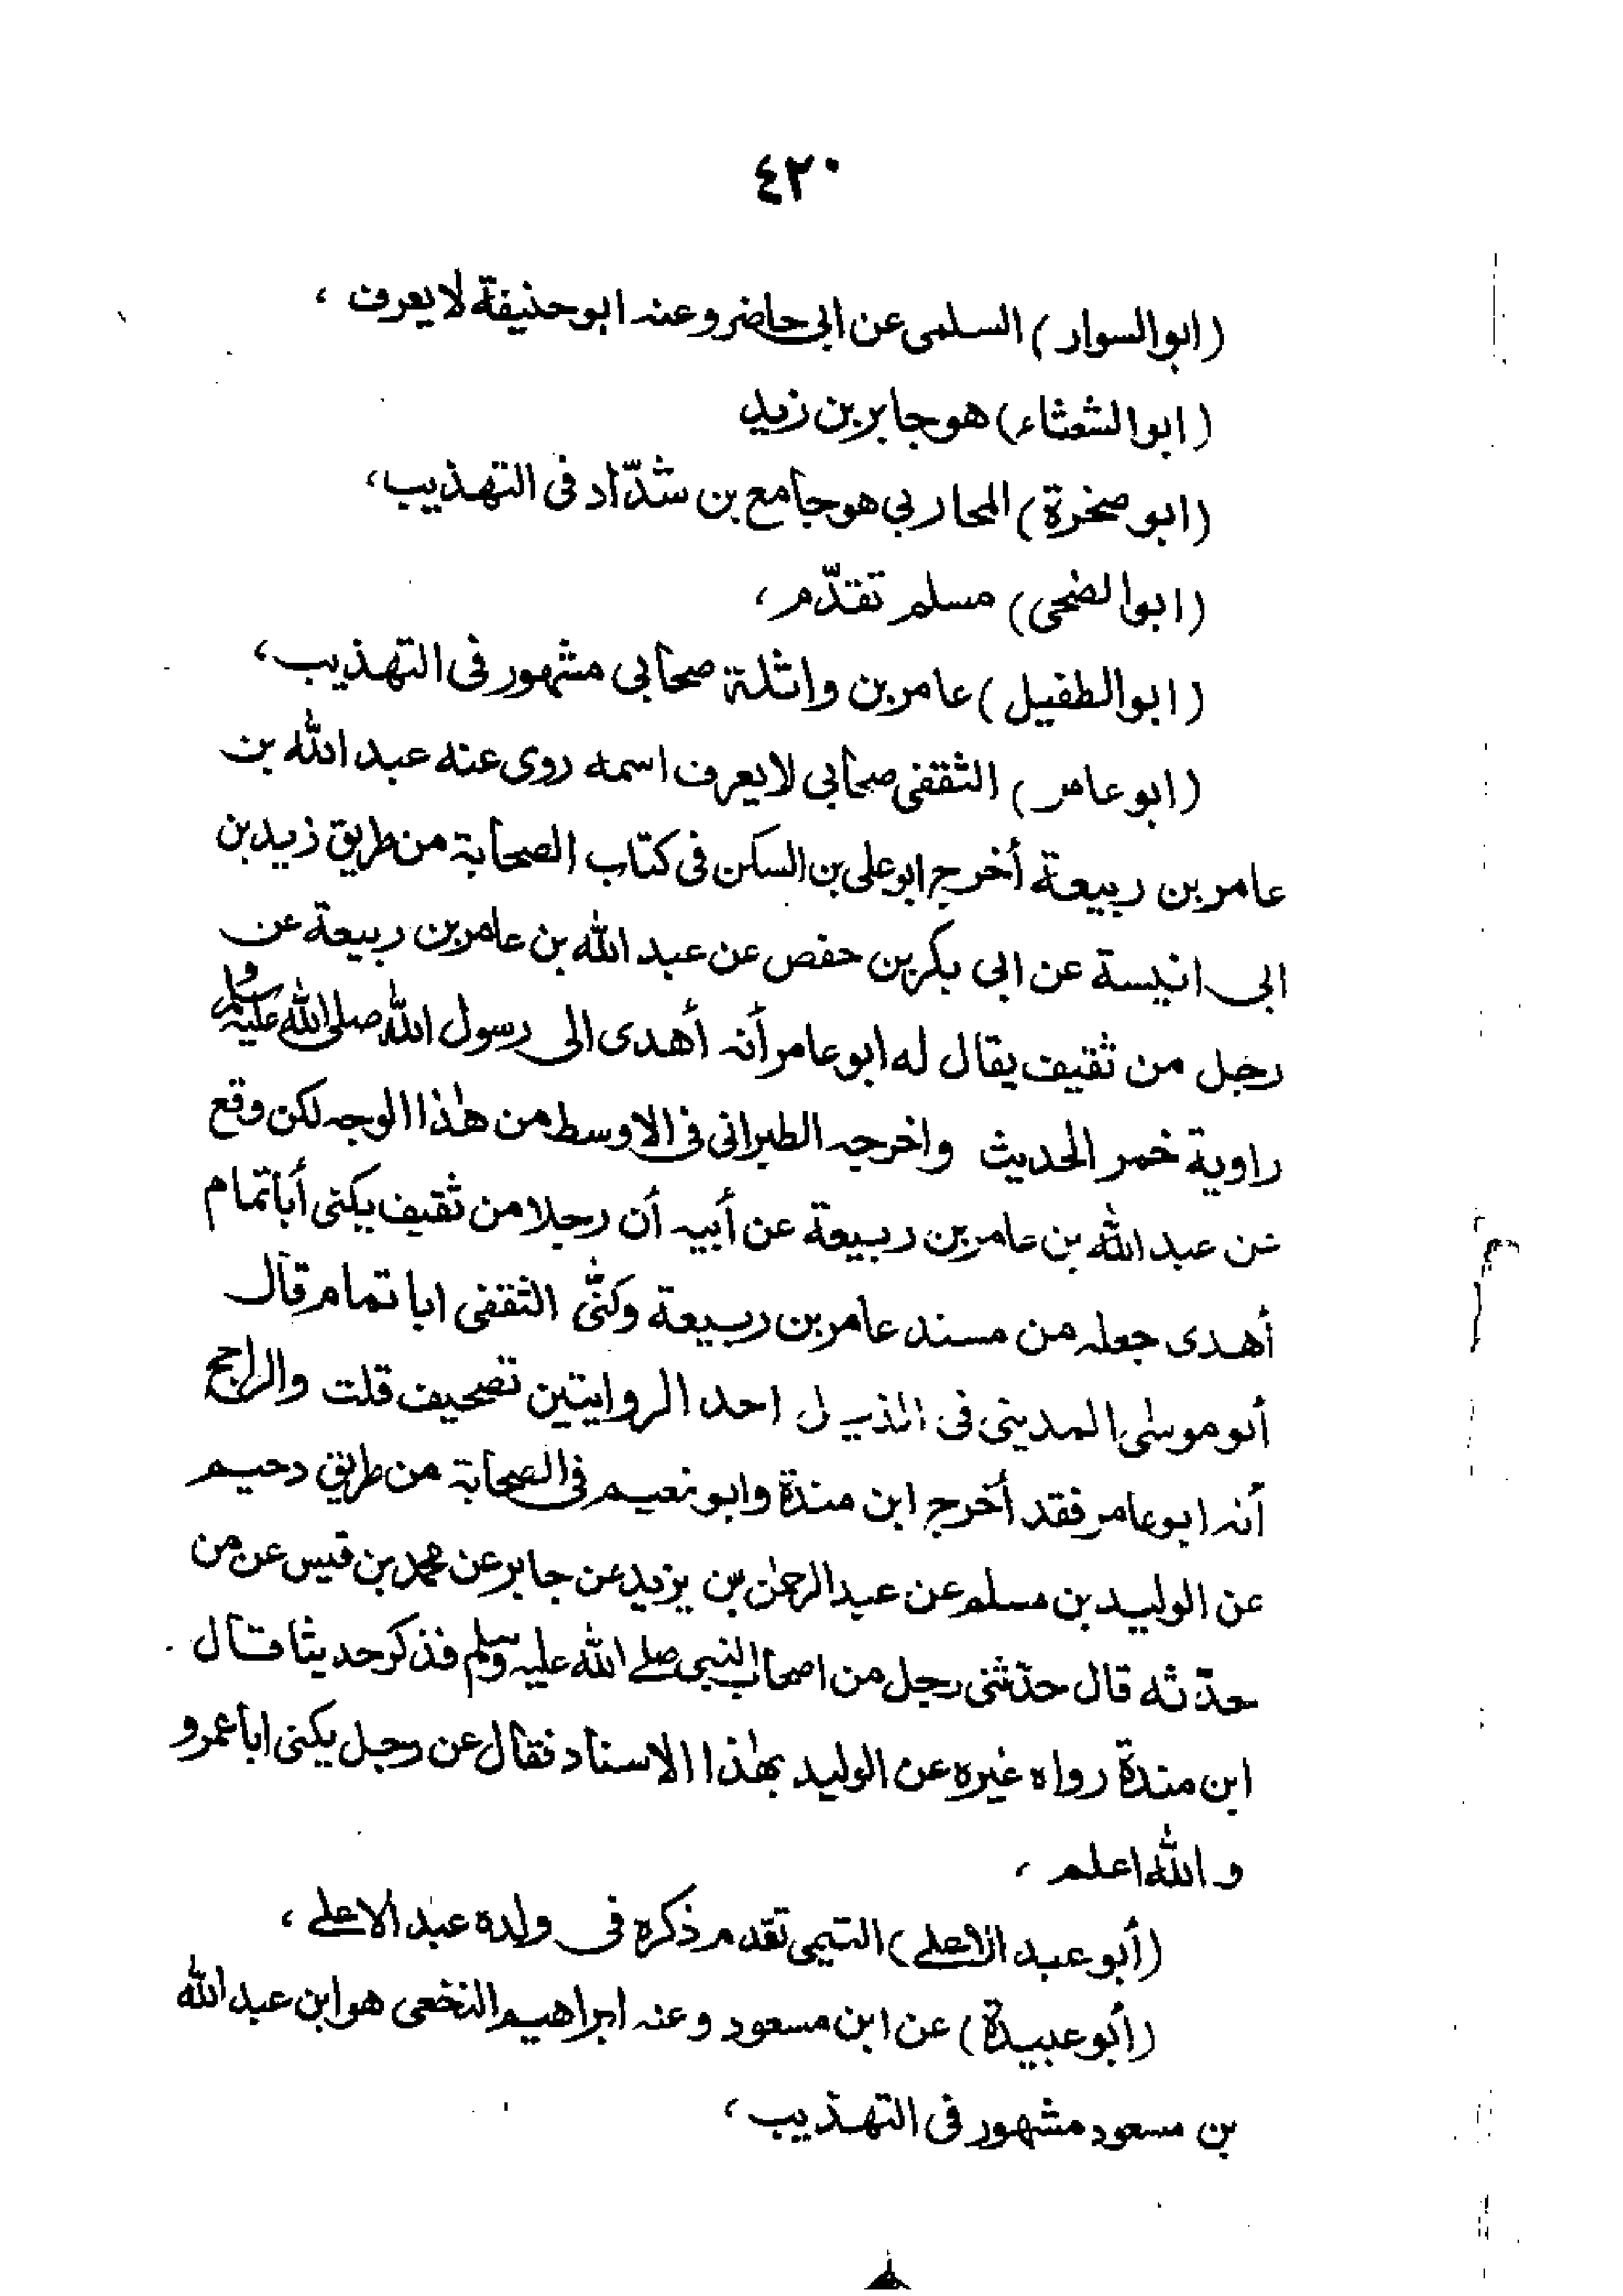 ٤٢٠
(ابوالسوار) السلمى عن ابى حاضر وعنه ابوحنيفة لا يعرف ،
(ابوالشعثاء) هوجابربن زيد
(ابوصخرة) المحاربي هوجامع بن شدّاد فى التهذيب،
(ابوالضحى) مسلم تقدّم،
(ابوالطفيل) عامربن واثلة صحابى مشهور فى التهذيب،
(ابوعامر) الثقفى صحابى لايعرف اسمه روى عنه عبد الله بن
عامر بن ربيعة أخرج ابوعلى بن السكن فى كتاب الصحابة من طريق زيد بن
ابى انيسة عن ابى بكر بن حفص عن عبد الله بن عامر بن ربيعة عن
رجل من ثقيف يقال له ابوعامر أنه أهدى الى رسول الله صلى الله عليه وسلم
راوية خمر الحديث واخرجه الطبرانى فى الاوسط من هذا الوجه لكن وقع
عن عبد الله بن عامر بن ربيعة عن أبيه أن رجلا من ثقيف يكنى أبا تمام
أهدى جعله من مسند عامر بن ربيعة وكنّى الثقفى ابا تمام قال
أبوموسى المدينى فى الذيل احد الروايتين تصحيف قلت والراجح
أنه ابوعامر فقد أخرج ابن مندة وابونعيم فى الصحابة من طريق دحيم
عن الوليد بن مسلم عن عبد الرحمن بن يزيد عن جابر عن محمد بن قيس عن من
حدّثه قال حدّثنى رجل من اصحاب النبى صلے الله عليه وسلم فذكر حديثا قال
ابن مندة رواه غيره عن الوليد بهذا الاسناد فقال عن رجل يكنى اباعمرو
والله اعلم ،
(أبوعبد الاعلے) التيمى تقدم ذكره فى ولده عبد الاعلے ،
(أبوعبيدة) عن ابن مسعود وعنه ابراهيم النخعى هو ابن عبد الله
بن مسعود مشهور فى التهذيب ،